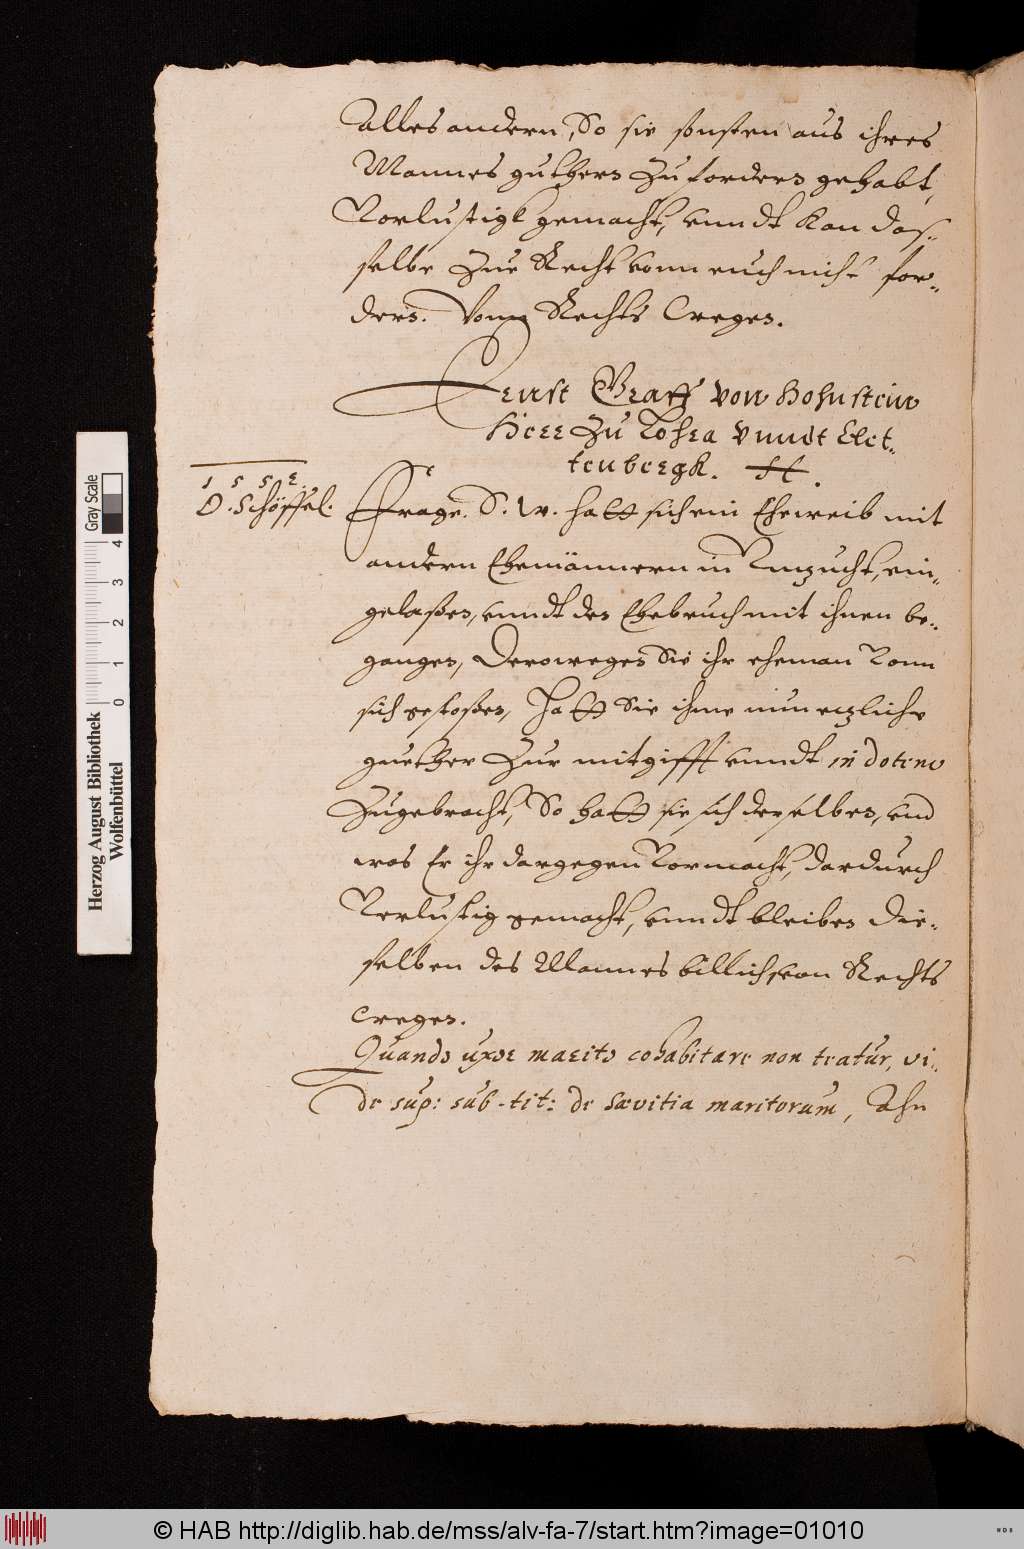 Alles andern, So sie sonsten aus ihres
Mannes guthern zufordern gehabt,
Vorlustigk gemacht, vnndt kan das=
selbe zue Recht vonn euch nicht for=
dern. Vonn Rechts wegen.
Ernst Graff von Hohnstein
Herr zu Lohra vnndt Clet=
tenbergk. H.
1 5 5 2.
D. Schöffel.
Frage. D. W. hatt sich ein Eheweib mit
andern Ehemännern in Vnzucht, ein=
gelaßen, vnndt den Ehebruch mit ihnen be=
gangen, Deroweegen Sie ihr eheman Vonn
sich gestoßen, Hatt Sie ihme nun etzliche
guether Zur mitgifft vnndt in dotem
Zugebracht, So hatt sie sich derselben, vnd
was Er ihr dargegen Vormacht, dardurch
Verlustig gemacht, vnndt bleiben die=
selben des Mannes billich, von Rechts
wegen.
Quando uxor marito cohabitare non teatur, vi=
de sup: sub tit: de sævitia maritorum, Ahn
Herzog August Bibliothek
Wolfenbüttel
Gray Scale
0 1 2 3 4
© HAB http://diglib.hab.de/mss/alv-fa-7/start.htm?image=01010